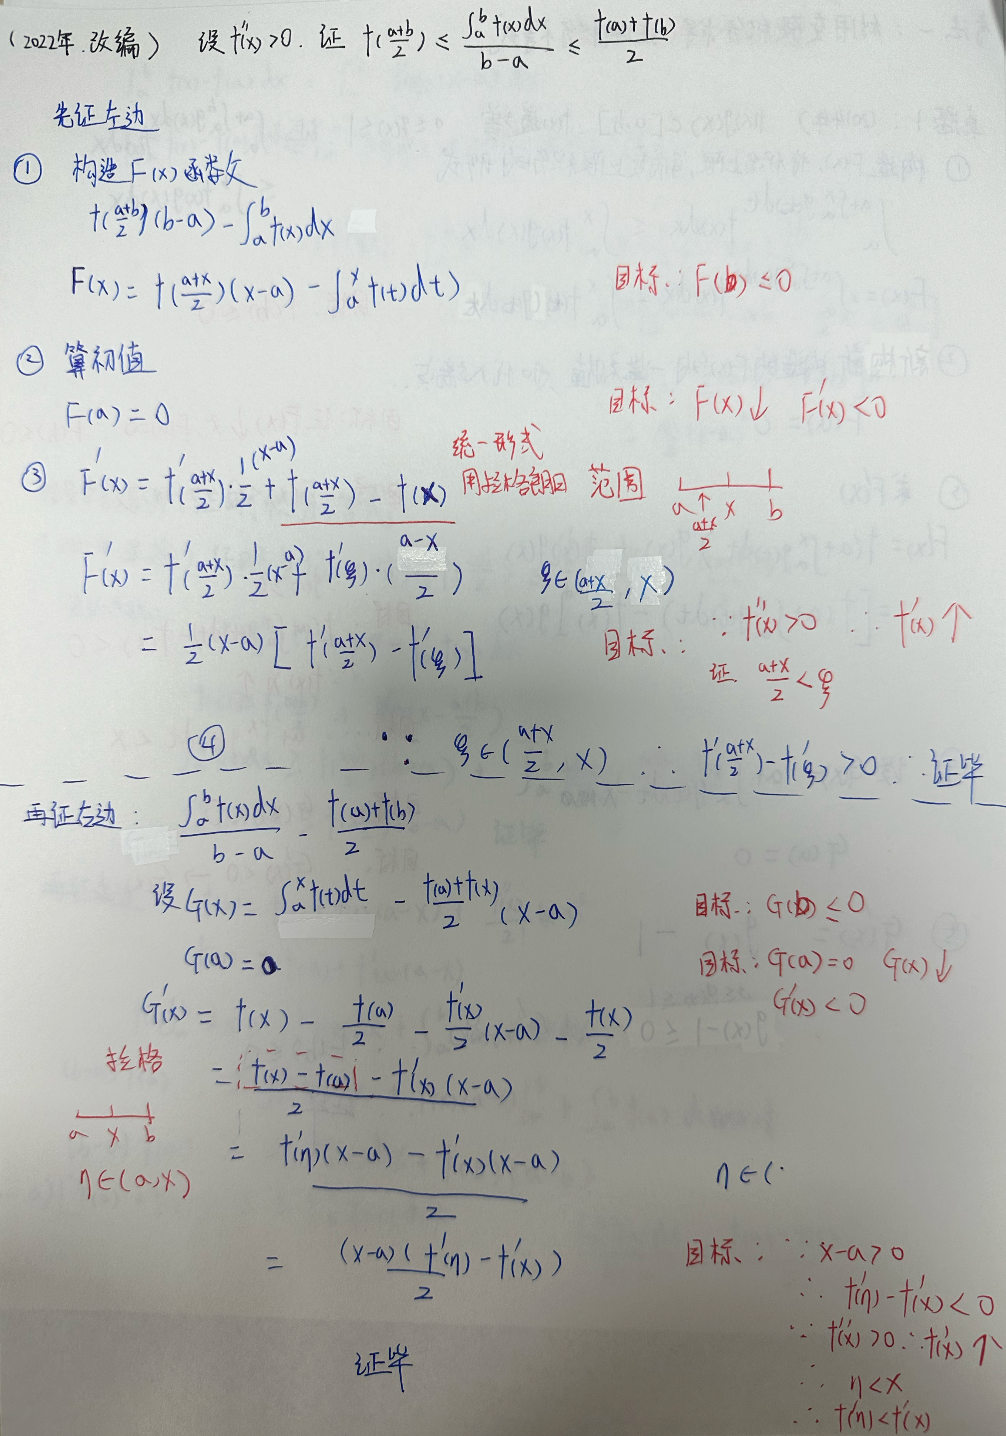 (2022年.改编) 设f''(x)>0. 证 f((a+b)/2) ≤ ∫_a^b f(x)dx / (b-a) ≤ (f(a)+f(b))/2
先证左边
① 构造F(x)函数
f((a+b)/2)(b-a) - ∫_a^b f(x)dx
F(x) = f((a+x)/2)(x-a) - ∫_a^x f(t)dt) 目标: F(b) ≤ 0
② 算初值
F(a) = 0 目标: F(x)↓ F'(x)<0
③ F'(x) = f'((a+x)/2)·1/2(x-a) + f((a+x)/2) - f(x) 统一形式 用拉格朗日 范围 a (a+x)/2 x b
F'(x) = f'((a+x)/2)·1/2(x-a) + f'(ξ)·((a-x)/2) ξ∈((a+x)/2, x)
= 1/2(x-a)[f'((a+x)/2) - f'(ξ)] 目标: ∵ f''(x)>0 ∴ f'(x)↑
证. (a+x)/2 < ξ
④ ∵ ξ∈((a+x)/2, x) ∴ f'((a+x)/2) - f'(ξ) > 0 ∴ 证毕
再证右边: ∫_a^b f(x)dx / (b-a) - (f(a)+f(b))/2
设G(x) = ∫_a^x f(t)dt - (f(a)+f(x))/2 (x-a) 目标: G(b) ≤ 0
G(a) = 0 目标: G(a)=0 G(x)↓
G'(x) = f(x) - f(a)/2 - f'(x)/2 (x-a) - f(x)/2 G'(x)<0
拉格 = (f(x) - f(a) - f'(x)(x-a))/2
a x b
η∈(a,x) = (f'(η)(x-a) - f'(x)(x-a))/2 η∈(
= (x-a)(f'(η) - f'(x))/2 目标: ∵ x-a>0
∴ f'(η)-f'(x)<0
∵ f''(x)>0 ∴ f'(x)↑
证毕 ∴ η<x
∴ f'(η)<f'(x)